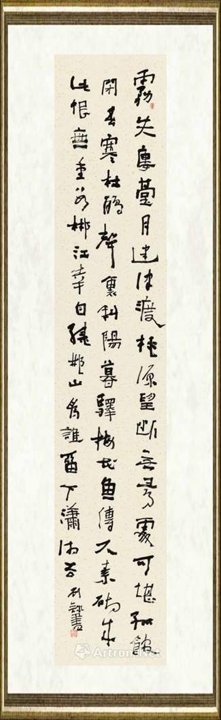 霧失廔臺月迷津渡桃源望断无寻處可堪孤館
閉春寒杜鵑聲裏斜陽暮驛梅花魚傳尺素砌成
此恨無重数郴江幸自繞郴山為誰留下瀟湘去